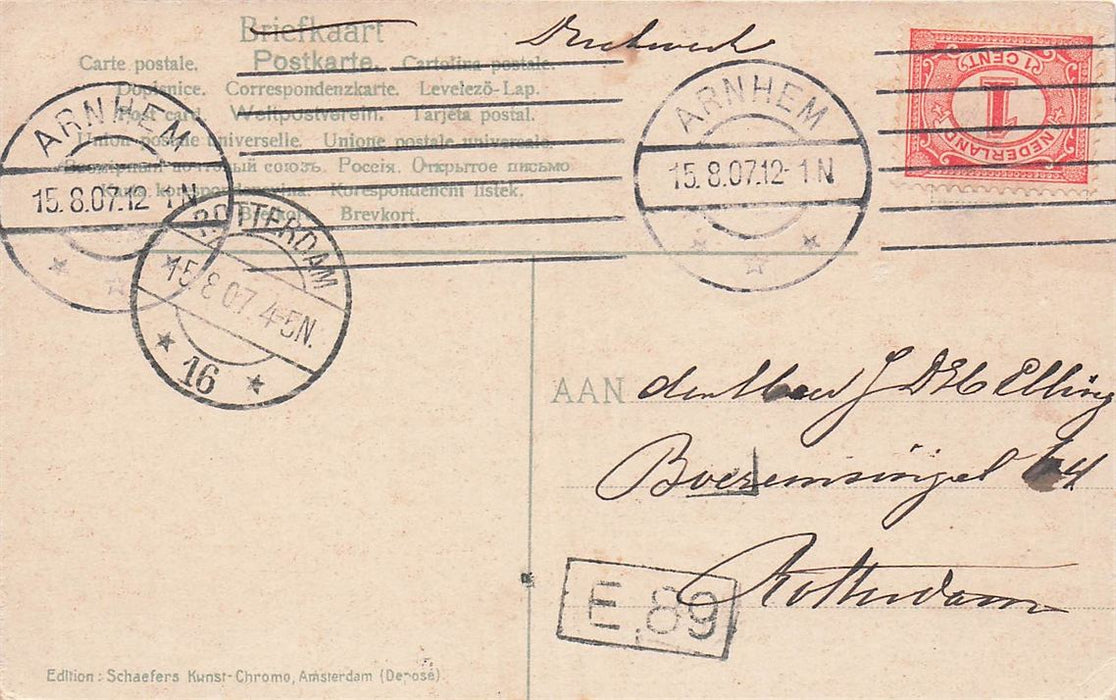 Briefkaart
Drukwerk
Carte postale. Postkarte. Cartolina postale.
Dopisnice. Correspondenzkarte. Levelező-Lap.
Post card. Weltpostverein. Tarjeta postal.
Union postale universelle. Unione postale universale.
Всемірный почтовый союзъ. Россія. Открытое письмо
korespondencyjna. Korespondenční lístek.
Brefkort. Brevkort.
ARNHEM
15.8.07.12-1N
ROTTERDAM
15.8.07.4-5N.
16
ARNHEM
15.8.07.12-1N
1 CENT
1
NEDERLAND
AAN den Heer J Elling
Boezemsingel
Rotterdam
E.89
Edition: Schaefers Kunst-Chromo, Amsterdam (Derosé).